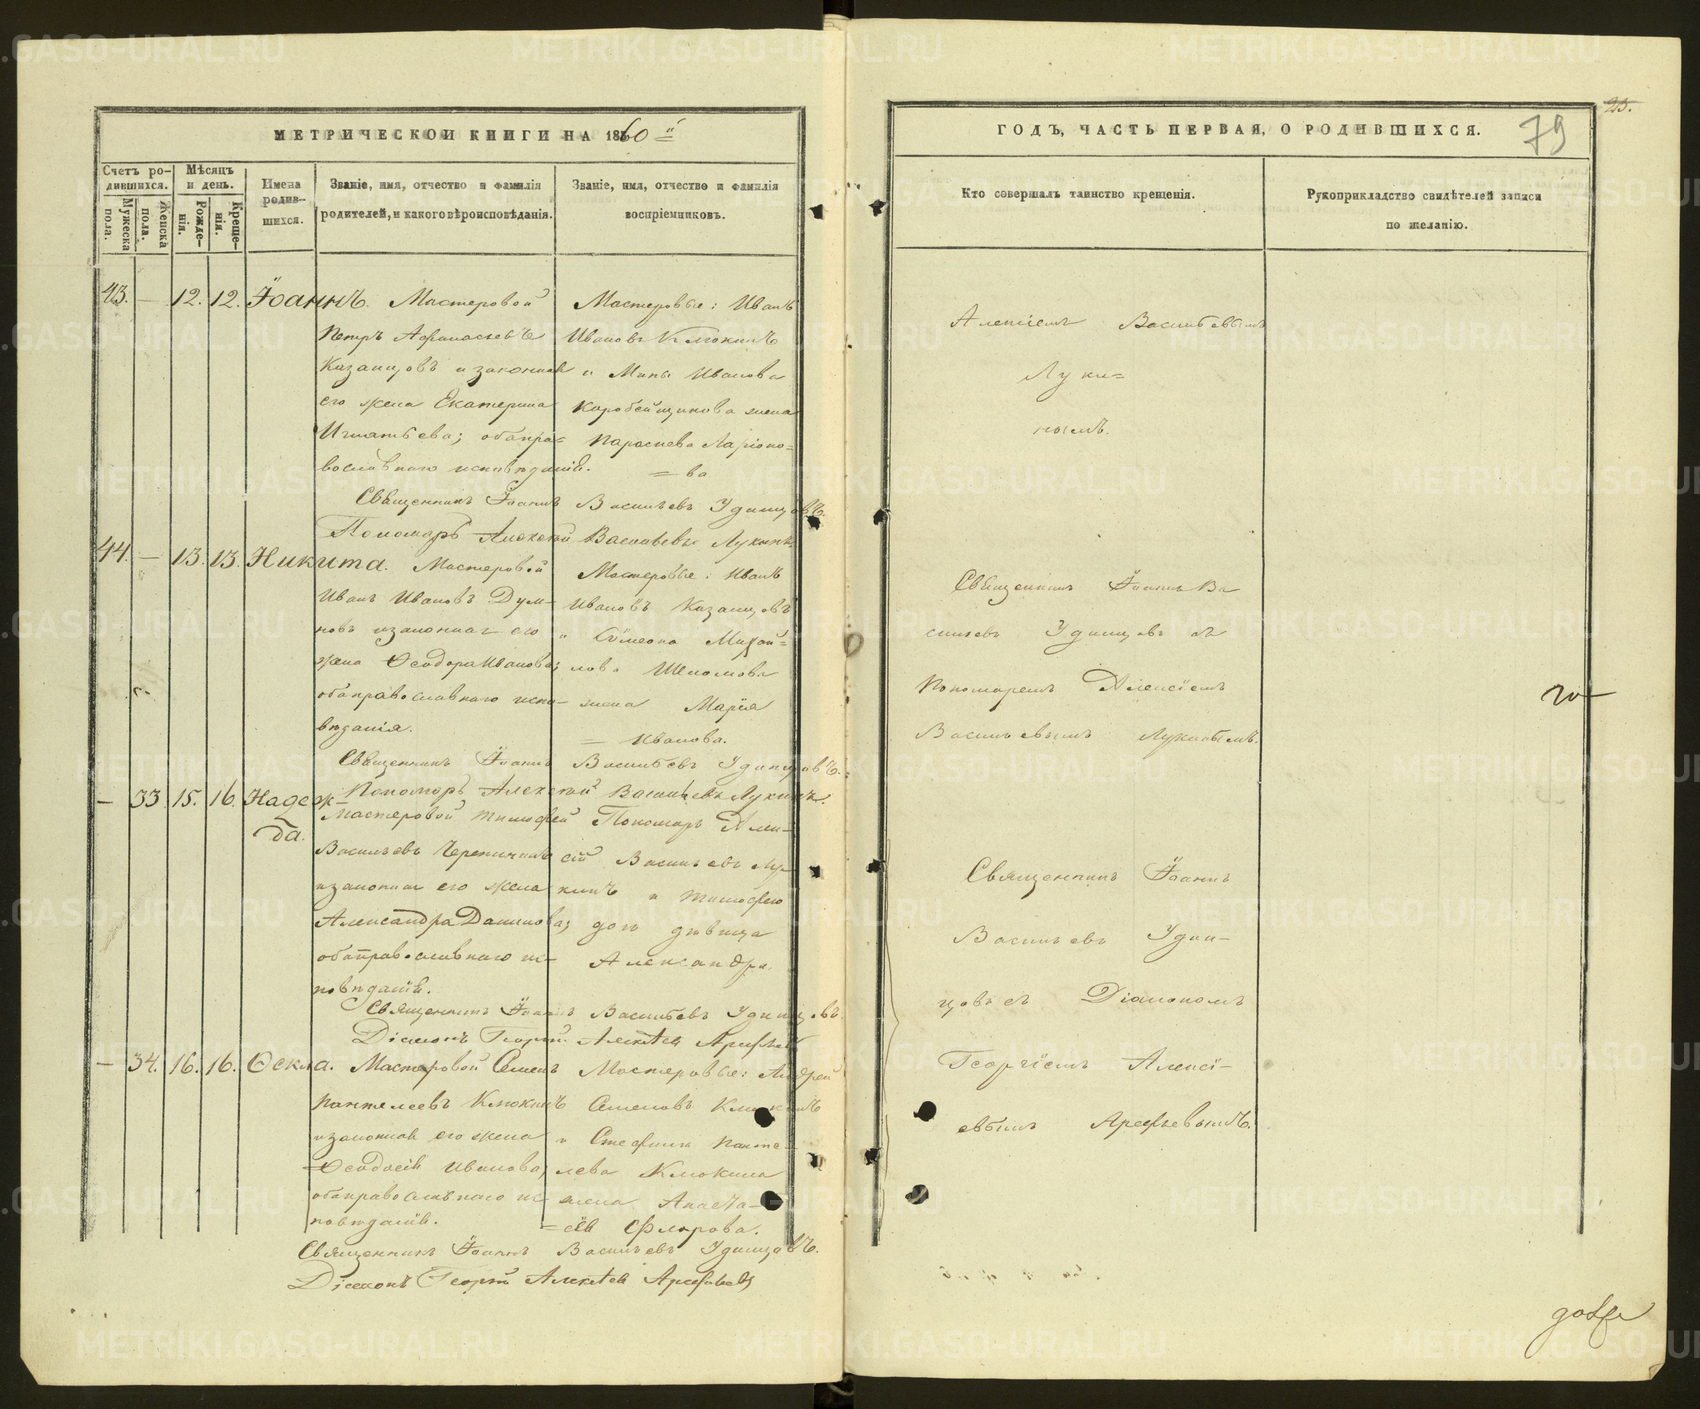 МЕТРИЧЕСКОЙ КНИГИ НА 1860й
Счетъ родившихся.
Мужеска пола.
Женска пола.
Мѣсяцъ и день.
Рожденія.
Крещенія.
Имена родившихся.
Званіе, имя, отчество и фамилія
родителей, и какого вѣроисповѣданія.
Званіе, имя, отчество и фамилія
воспріемниковъ.
43. — 12. 12. Іоаннъ.
Мастеровой
Петръ Афанасьевъ
Казанцовъ и законная
его жена Екатерина
Игнатьева; оба пра=
вославнаго исповѣданія.
Мастеровые: Иванъ
Ивановъ Клюкинъ
и Мины Иванова
Коробейщикова жена
Параскева Ларіоно=
=ва
Священникъ Іоаннъ Васильевъ Удинцовъ.
Пономарь Алексей Васильевъ Лукинъ
44. — 13. 13. Никита.
Мастеровой
Иванъ Ивановъ Дум-
новъ и законная его
жена Ѳеодора Иванова;
оба православнаго испо-
вѣданія.
Мастеровые: Иванъ
Ивановъ Казанцовъ
и Симеона Михай=
лова
жена Марія
= Иванова.
Священникъ Іоаннъ Васильевъ Удинцовъ.
Пономарь Алексей Васильевъ Лукинъ.
— 33. 15. 16. Надеж-
да.
Мастеровой Тимофей
Васильевъ
и законная его жена
Александра Данилова;
оба православнаго ис-
повѣданія.
Пономарь Алек-
сій Васильевъ Лу
кинъ и Тимофея
дочь дѣвица
Александра.
Священникъ Іоаннъ Васильевъ Удинцовъ.
Діаконъ Георгій Алексѣевъ Арефьевъ
— 34. 16. 16. Ѳекла.
Мастеровой Семенъ
Пантелеевъ Клюкинъ
и законная его жена
Ѳеодосія Иванова;
оба православнаго ис-
повѣданія.
Мастеровые: Андрей
Семеновъ Клюкинъ
и Стефана Панте-
лева Клюкина
жена Анаста-
=сія Флорова.
Священникъ Іоаннъ Васильевъ Удинцовъ.
Діаконъ Георгій Алексѣевъ Арефьевъ
ГОДЪ, ЧАСТЬ ПЕРВАЯ, О РОДИВШИХСЯ.
79
Кто совершалъ таинство крещенія.
Рукоприкладство свидѣтелей записи
по желанію.
Алексіемъ Васильевымъ
Луки=
нымъ.
Священникъ Іоаннъ Ва
сильевъ Удинцовъ съ
Пономаремъ Алексіемъ
Васильевымъ Лукинымъ.
Священникъ Іоаннъ
Васильевъ Удин-
цовъ съ Діакономъ
Георгіемъ Алексі-
евымъ Арефьевымъ.
METRIKI.GASO-URAL.RU